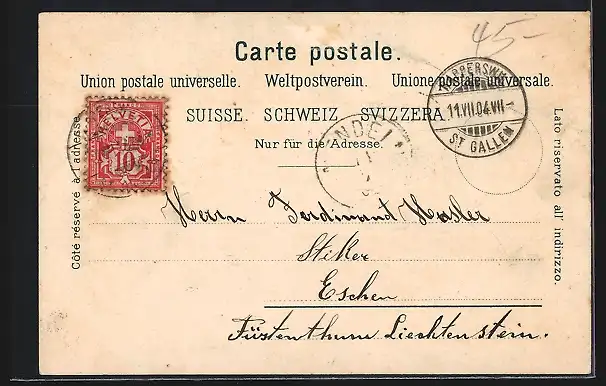 45-
Carte postale.
Union postale universelle. Weltpostverein. Unione postale universale.
SUISSE. SCHWEIZ SVIZZERA.
Nur für die Adresse.
Côté réservé à l'adresse.
Lato riservato all' indirizzo.
HELVETIA
10
11.VII.04.VII
ST GALLEN
Herrn Ferdinand Hasler
Stiker
Eschen
Fürstenthum Liechtenstein.